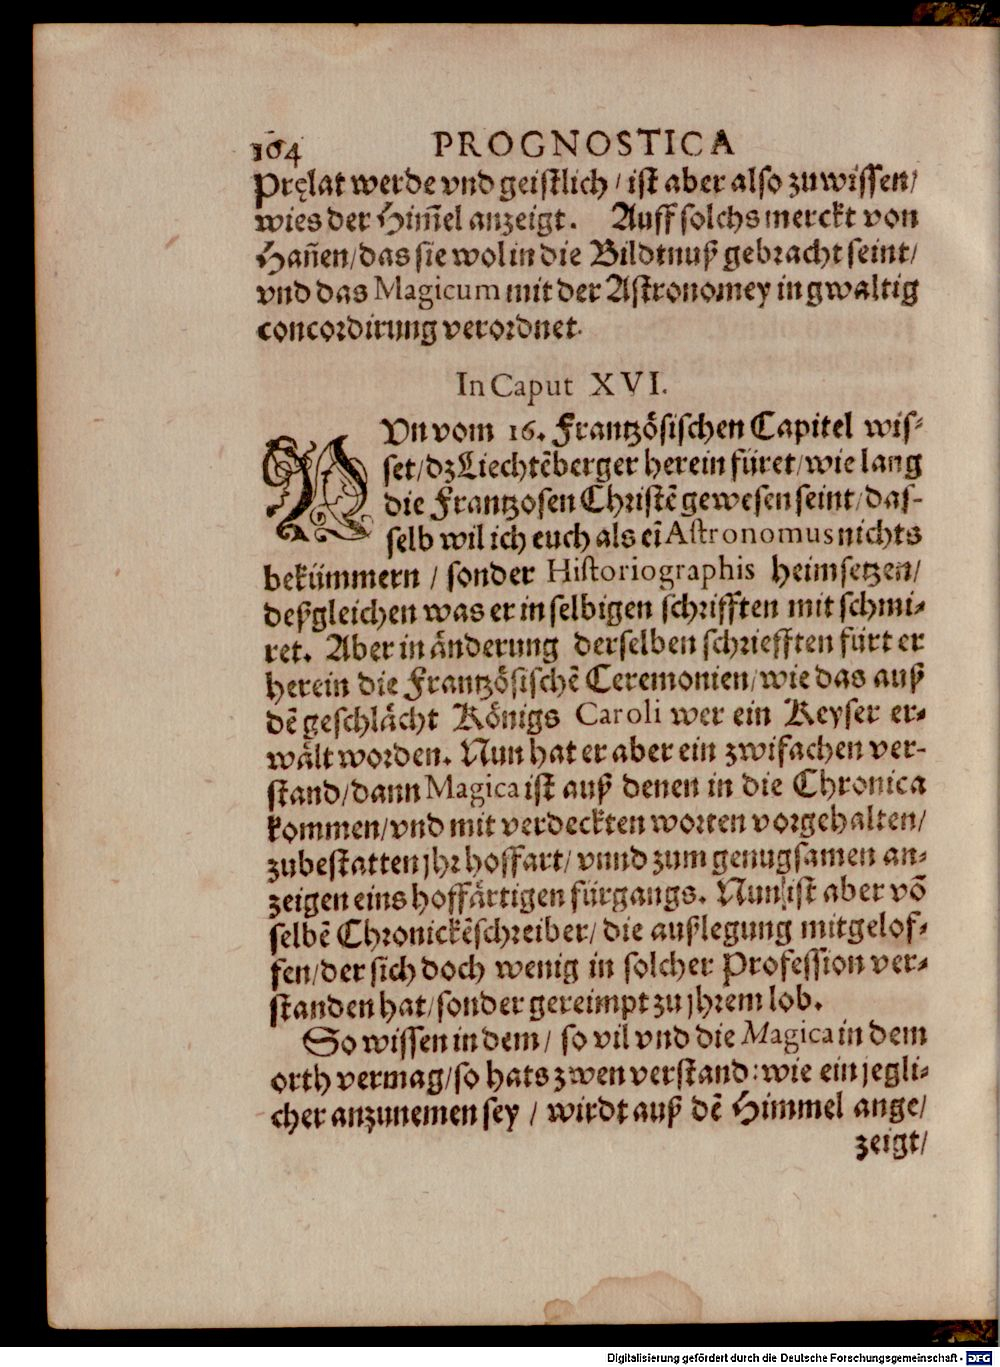 164 PROGNOSTICA
Pręlat werde vnd geistlich / ist aber also zuwissen/
wies der Him̃el anzeigt. Auff solchs merckt von
Hañen/das sie wol in die Bildtnuß gebracht seint/
vnd das Magicum mit der Astronomey in gwaltig
concordirung verordnet.
In Caput XVI.
NVn vom 16. Frantzösischen Capitel wis-
set/dz Liechtẽberger herein füret/wie lang
die Frantzosen Christẽ gewesen seint/das-
selb wil ich euch als eĩ Astronomus nichts
bekümmern / sonder Historiographis heimsetzen/
deßgleichen was er in selbigen schrifften mit schmi-
ret. Aber in änderung derselben schriefften fürt er
herein die Frantzösischẽ Ceremonien/wie das auß
dẽ geschlächt Königs Caroli wer ein Keyser er-
wält worden. Nun hat er aber ein zwifachen ver-
stand/dann Magica ist auß denen in die Chronica
kommen/vnd mit verdeckten worten vorgehalten/
zubestatten jhr hoffart/ vnnd zum genugsamen an-
zeigen eins hoffärtigen fürgangs. Nun ist aber võ
selbẽ Chronickẽschreiber/ die außlegung mitgelof-
fen/der sich doch wenig in solcher Profession ver-
standen hat/sonder gereimpt zu jhrem lob.
So wissen in dem/ so vil vnd die Magica in dem
orth vermag/so hats zwen verstand: wie ein jegli-
cher anzunemen sey / wirdt auß dẽ Himmel ange/
zeigt/
Digitalisierung gefördert durch die Deutsche Forschungsgemeinschaft - DFG